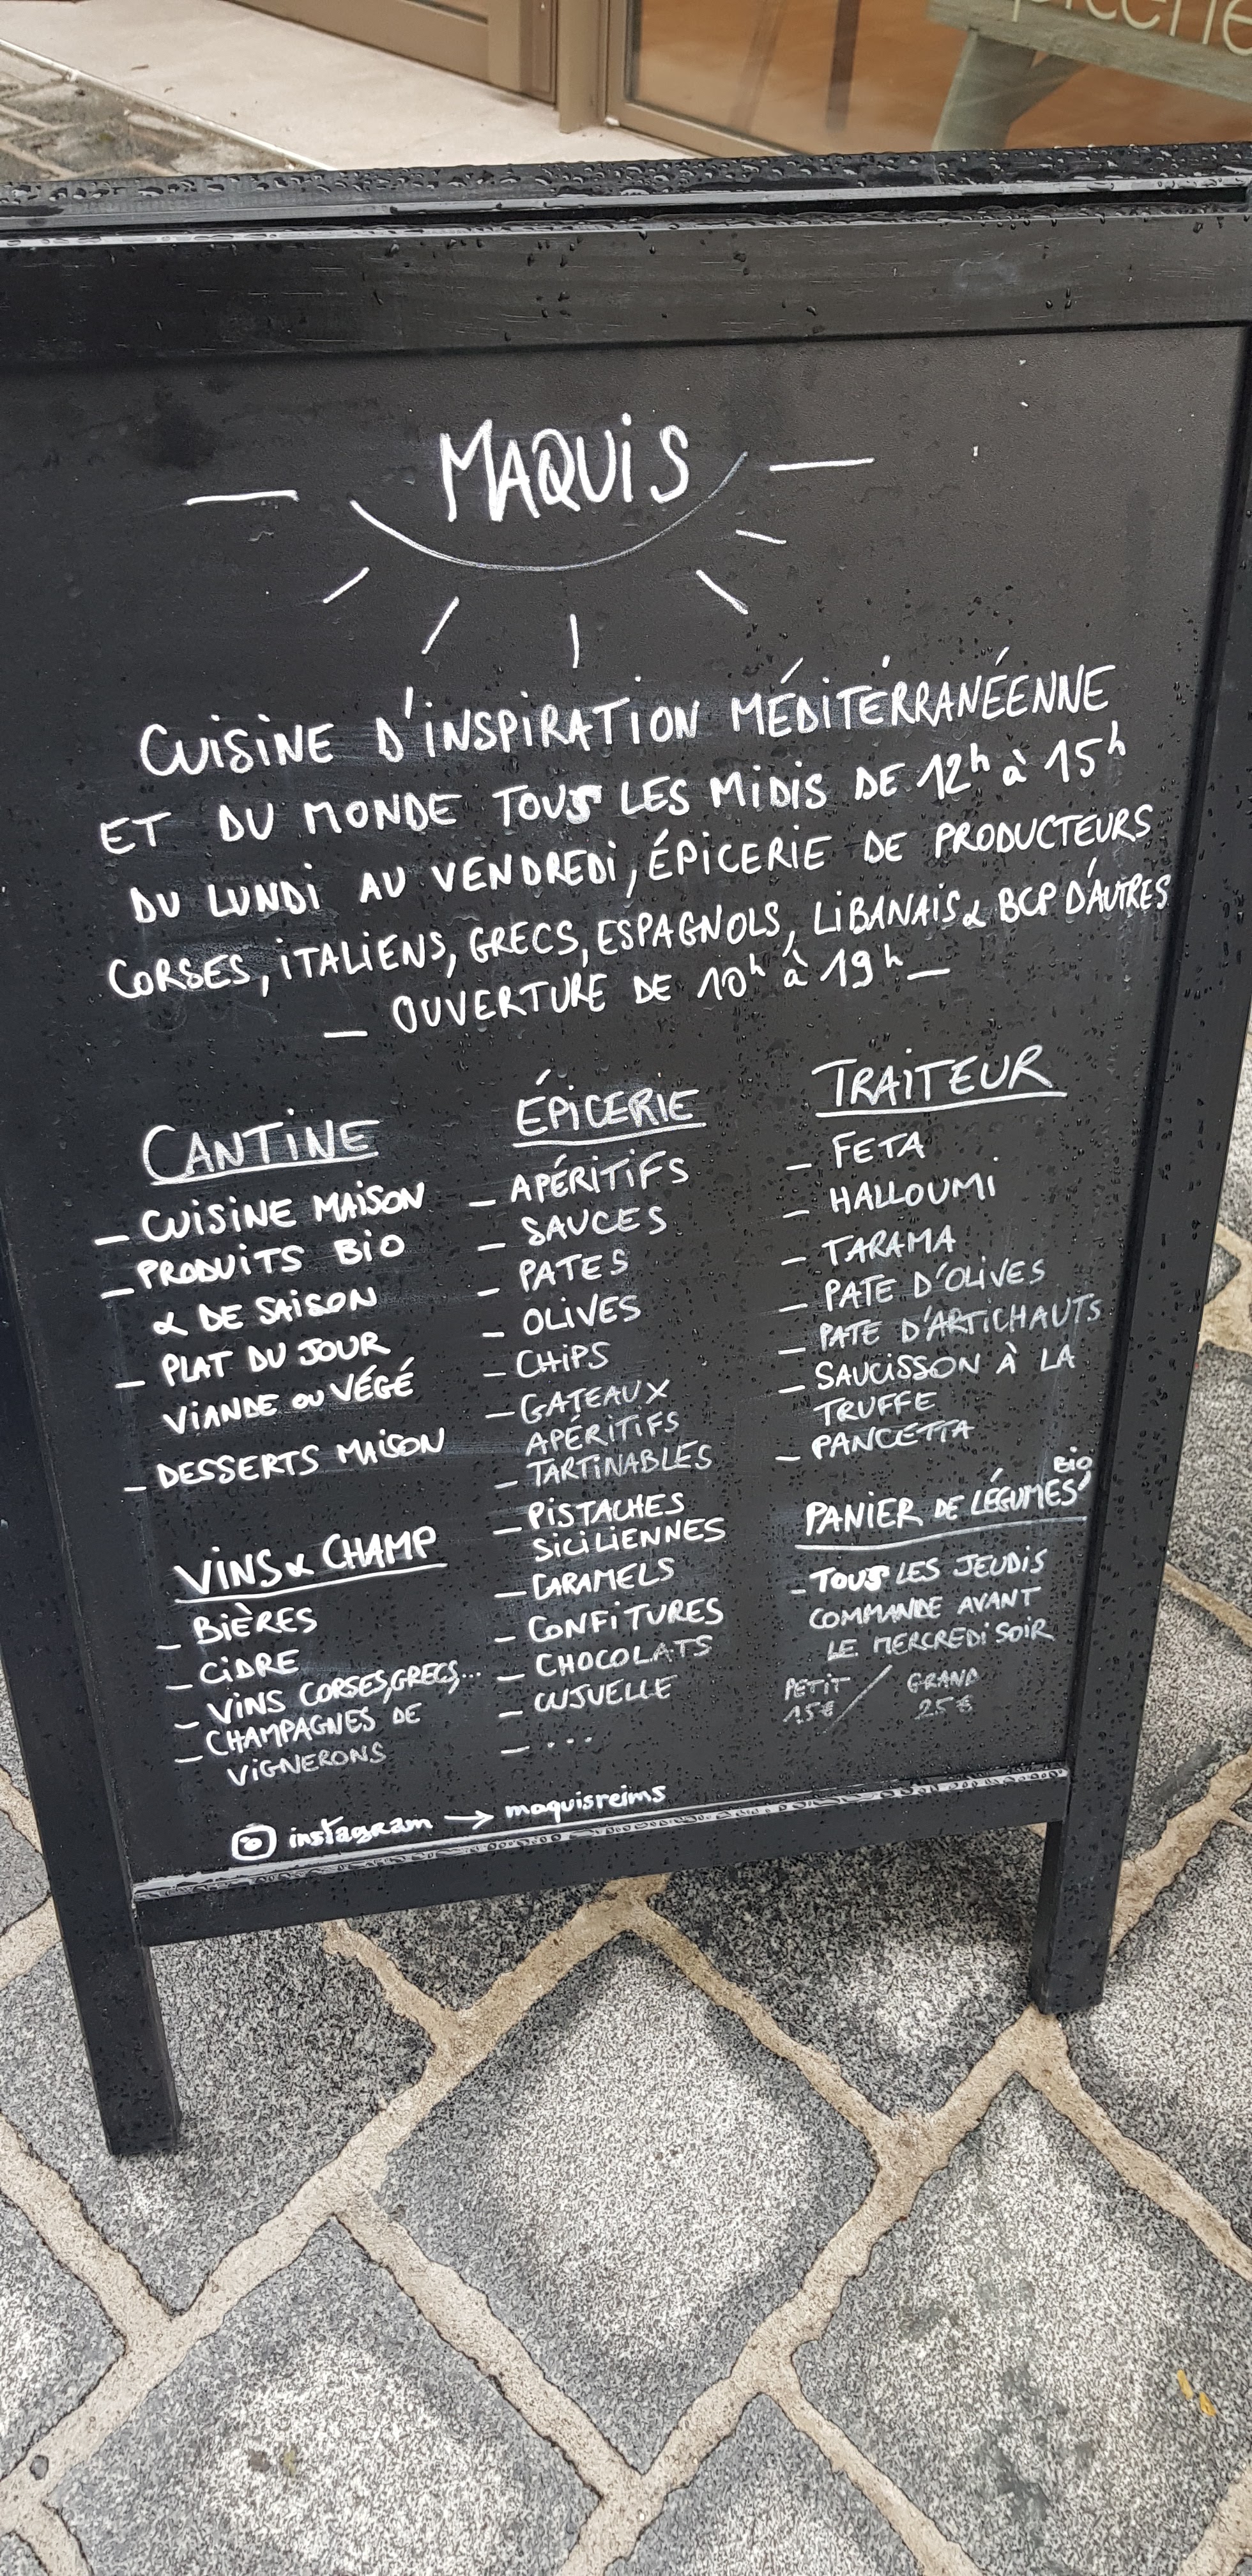 picerie
MAQUiS
CUiSiNE D'iNSPiRATiON MÉDiTÉRRANÉENNE
ET DU MONDE TOUS LES MiDiS DE 12h à 15h
DU LUNDi AU VENDREDi, ÉPiCERiE DE PRODUCTEURS
CORSES, iTALiENS, GRECS, ESPAGNOLS, LiBANAiS & BCP D'AUTRES
— OUVERTURE DE 10h à 19h —
CANTiNE
– CUiSiNE MAiSON
– PRODUiTS BiO
& DE SAiSON
– PLAT DU JOUR
ViANDE OU VÉGÉ
– DESSERTS MAiSON
ViNS & CHAMP
– BiÈRES
– CiDRE
– ViNS CORSES, GRECS, ...
– CHAMPAGNES DE
ViGNERONS
ÉPiCERIE
– APÉRiTiFS
– SAUCES
– PATES
– OLiVES
– CHiPS
– GATEAUX
APÉRiTiFS
– TARTiNABLES
– PiSTACHES
SiCiLiENNES
– CARAMELS
– CONFiTURES
– CHOCOLATS
– CUJUELLE
– ...
TRAiTEUR
– FETA
– HALLOUMi
– TARAMA
– PATE D'OLiVES
– PATE D'ARTiCHAUTS
– SAUCiSSON À LA
TRUFFE
– PANCETTA
PANiER DE LÉGUMES BiO
– TOUS LES JEUDiS
COMMANDE AVANT
LE MERCREDi SOiR
PETiT / GRAND
15€ 25€
instagram → maquisreims